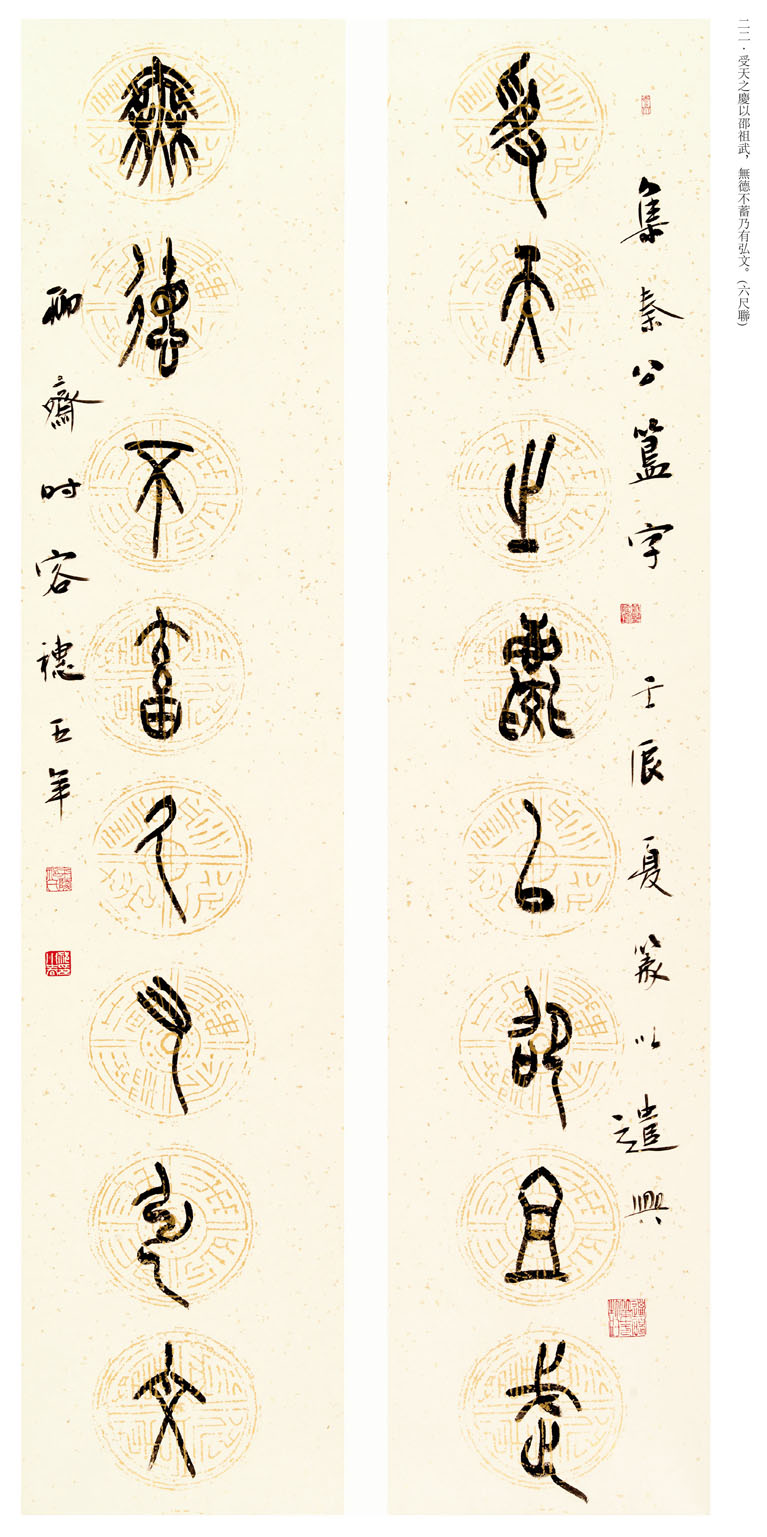 二二·受天之慶以邵祖武，無德不蓄乃有弘文。(六尺聯)
集秦公簋字 壬辰夏篆以遣興
受天之慶以邵且武
無德不畜乃有弘文
聊齋时客穗五年